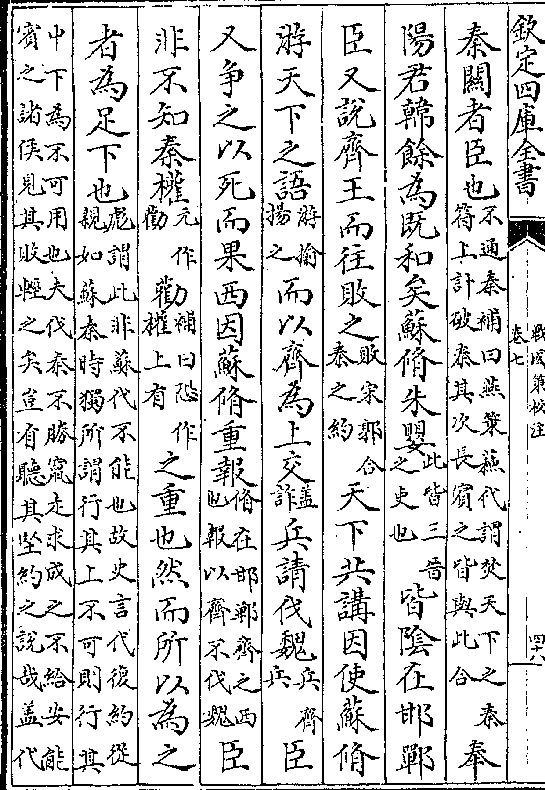 欽定四庫全書
戰國策校注
卷七
秦闗者臣也不通秦補曰燕策蘓代謂焚天下之秦符上計破秦其次長賔之皆與此合奉
陽君韓餘為既和矣蘇脩朱嬰此皆三晉之吏也皆陰在邯鄲
臣又說齊王而往敗之敗宋郭合秦之約天下共講因使蘇脩
游天下之語游揄揚之而以齊為上交蓋詐兵請伐魏兵齊兵臣
又争之以死而果西因蘇脩重報脩在邯鄲齊之西也報以齊不伐魏臣
非不知秦權元作勸勸補曰恐作權上有之重也然而所以為之
者為足下也彪謂此非蘇代不能也故史言代復約從親如蘇秦時獨所謂行其上不可則行其
中下為不可用也夫伐秦不勝竄走求成之不給安能賔之諸侯見其敗輕之矣豈有聽其堅約之說哉蓋代